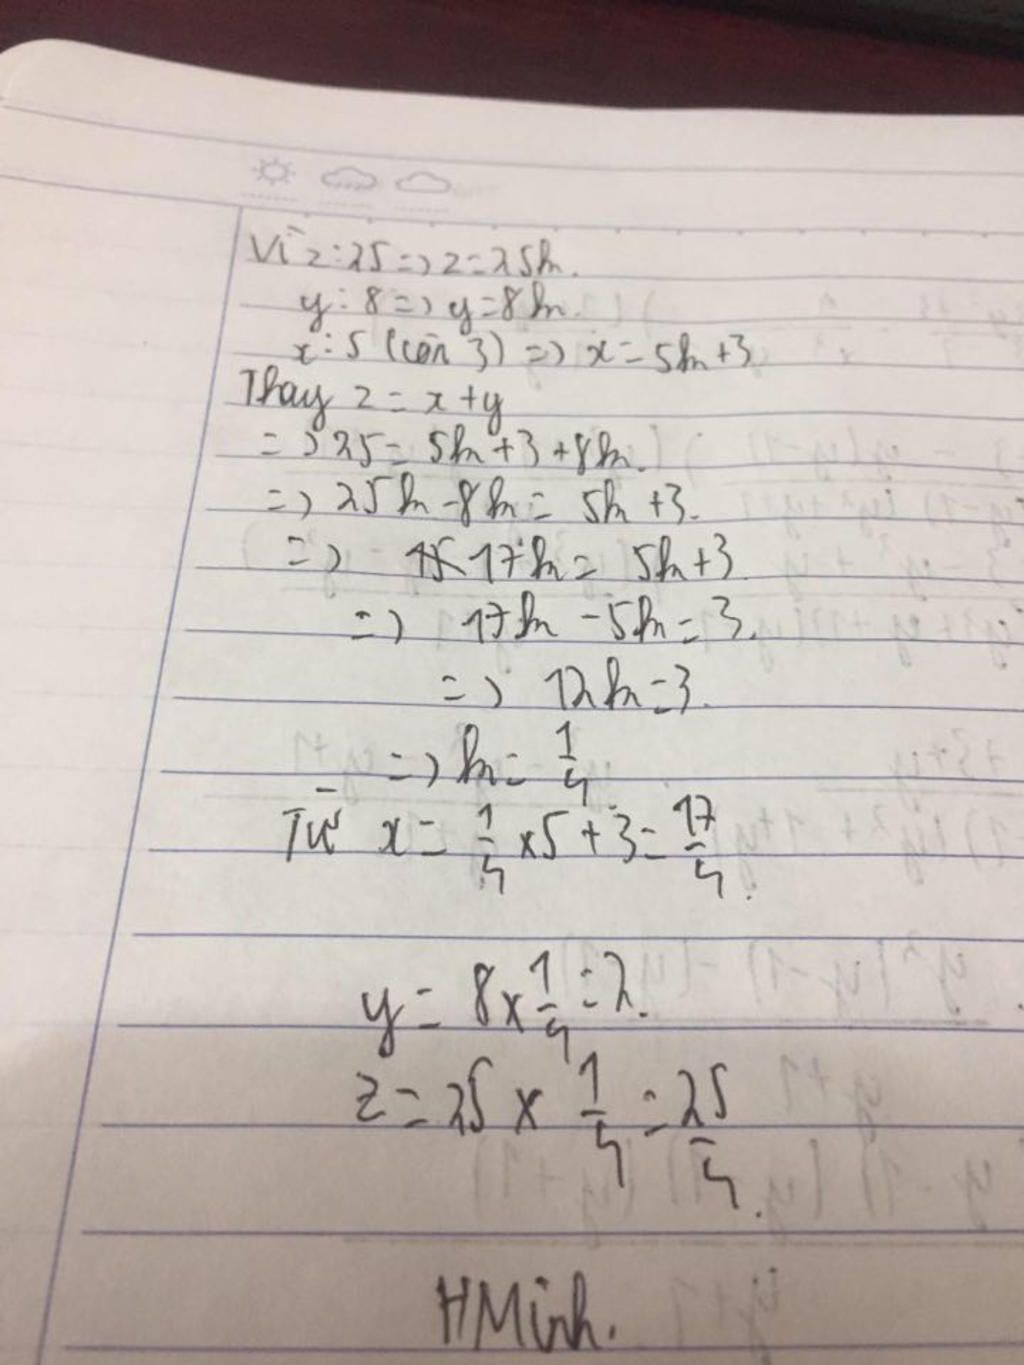 Vì z : 25 => z = 25k.
y : 8 => y = 8k.
x : 5 (còn 3) => x = 5k + 3
Thay z = x + y
=> 25 = 5k + 3 + 8k.
=> 25k - 8k = 5k + 3.
=> 17k = 5k + 3
=> 17k - 5k = 3.
=> 12k = 3.
=> k = 1/4
Từ x = 1/4 x 5 + 3 = 17/4.
y = 8 x 1/4 = 2.
z = 25 x 1/4 = 25/4.
HMinh.